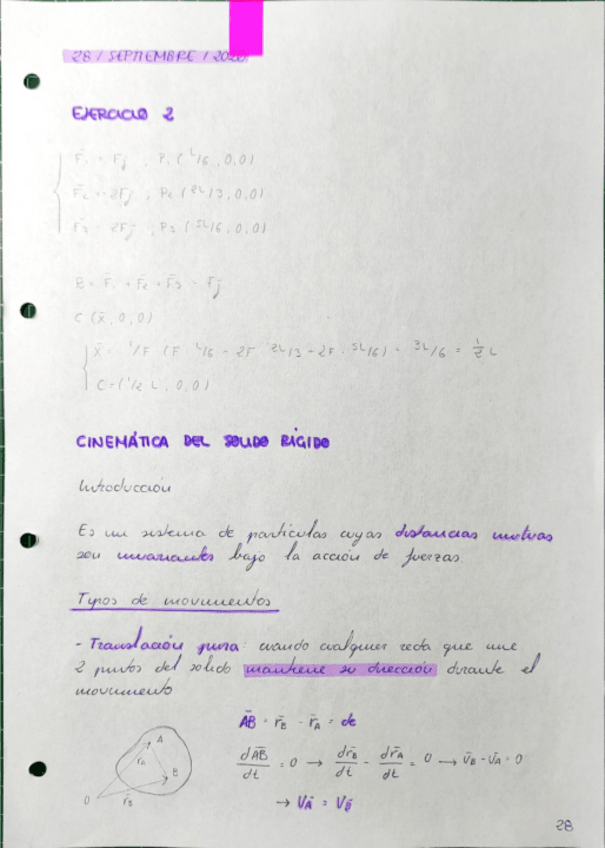 28 / SEPTIEMBRE / 2020
EJERCICIO 2
F̄₁ = Fj̄ , P₁ ( L/6 , 0,0)
F̄₂ = -2Fj̄ , P₂ ( 2L/3 , 0,0)
F̄₃ = 2Fj̄ , P₃ ( 5L/6 , 0,0)
R̄ = F̄₁ + F̄₂ + F̄₃ = Fj̄
C (x̄ , 0, 0)
x̄ = 1/F (F · L/6 - 2F · 2L/3 + 2F · 5L/6) = 3L/6 = 1/2 L
C = (1/2 L , 0, 0)
CINEMÁTICA DEL SOLIDO RÍGIDO
Introducción
Es un sistema de partículas cuyas distancias mutuas
son invariantes bajo la acción de fuerzas.
Tipos de movimientos
- Translación pura: cuando cualquier recta que une
2 puntos del solido mantiene su dirección durante el
movimiento
ĀB̄ = r̄B - r̄A = cte
dĀB̄/dt = 0 → dr̄B/dt - dr̄A/dt = 0 → v̄B - v̄A = 0
→ v̄A = v̄B
A
r̄A
B
O
r̄B
28